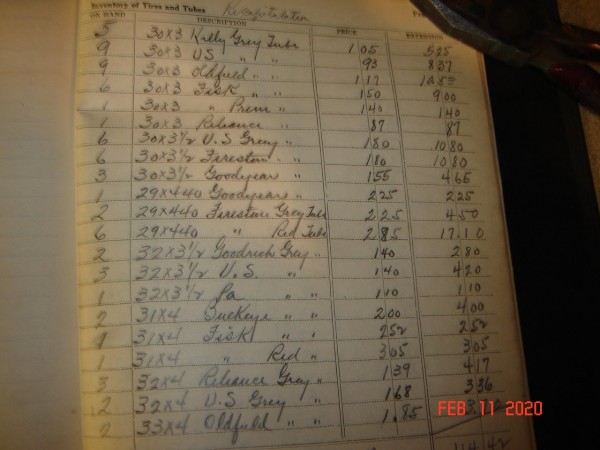 Inventory of Tires and Tubes Recapitulation
ON HAND DESCRIPTION PRICE EXTENSION
5 30X3 Kelly Grey Tube 1 05 5 25
9 30X3 US " " 93 8 37
9 30X3 Oldfield " " 1 17
6 30X3 Fisk " " 1 50 9 00
1 30X3 " Prem " 1 40 1 40
1 30X3 Reliance " 87 87
6 30X3 1/2 U.S Grey " 1 80 10 80
6 30X3 1/2 Firestone " " 1 80 10 80
3 30X3 1/2 Goodyear " 1 55 4 65
1 29X440 Goodyear " 2 25 2 25
2 29X440 Firestone Grey Tube 2 25 4 50
6 29X440 " Red Tube 2 85 17.10
2 32X3 1/2 Goodrich Grey " 1 40 2 80
3 32X3 1/2 U.S. " 1 40 4 20
1 32X3 1/2 Pa " " 1 10 1 10
2 31X4 Buckeye " " 2 00 4 00
1 31X4 Fisk " " 2 52 2 52
1 31X4 " Red " 3 05 3 05
3 32X4 Reliance Grey " 1 39 4 17
2 32X4 U.S Grey " 1 68 3 36
2 33X4 Oldfield " " 1.85
114 42
FEB 11 2020